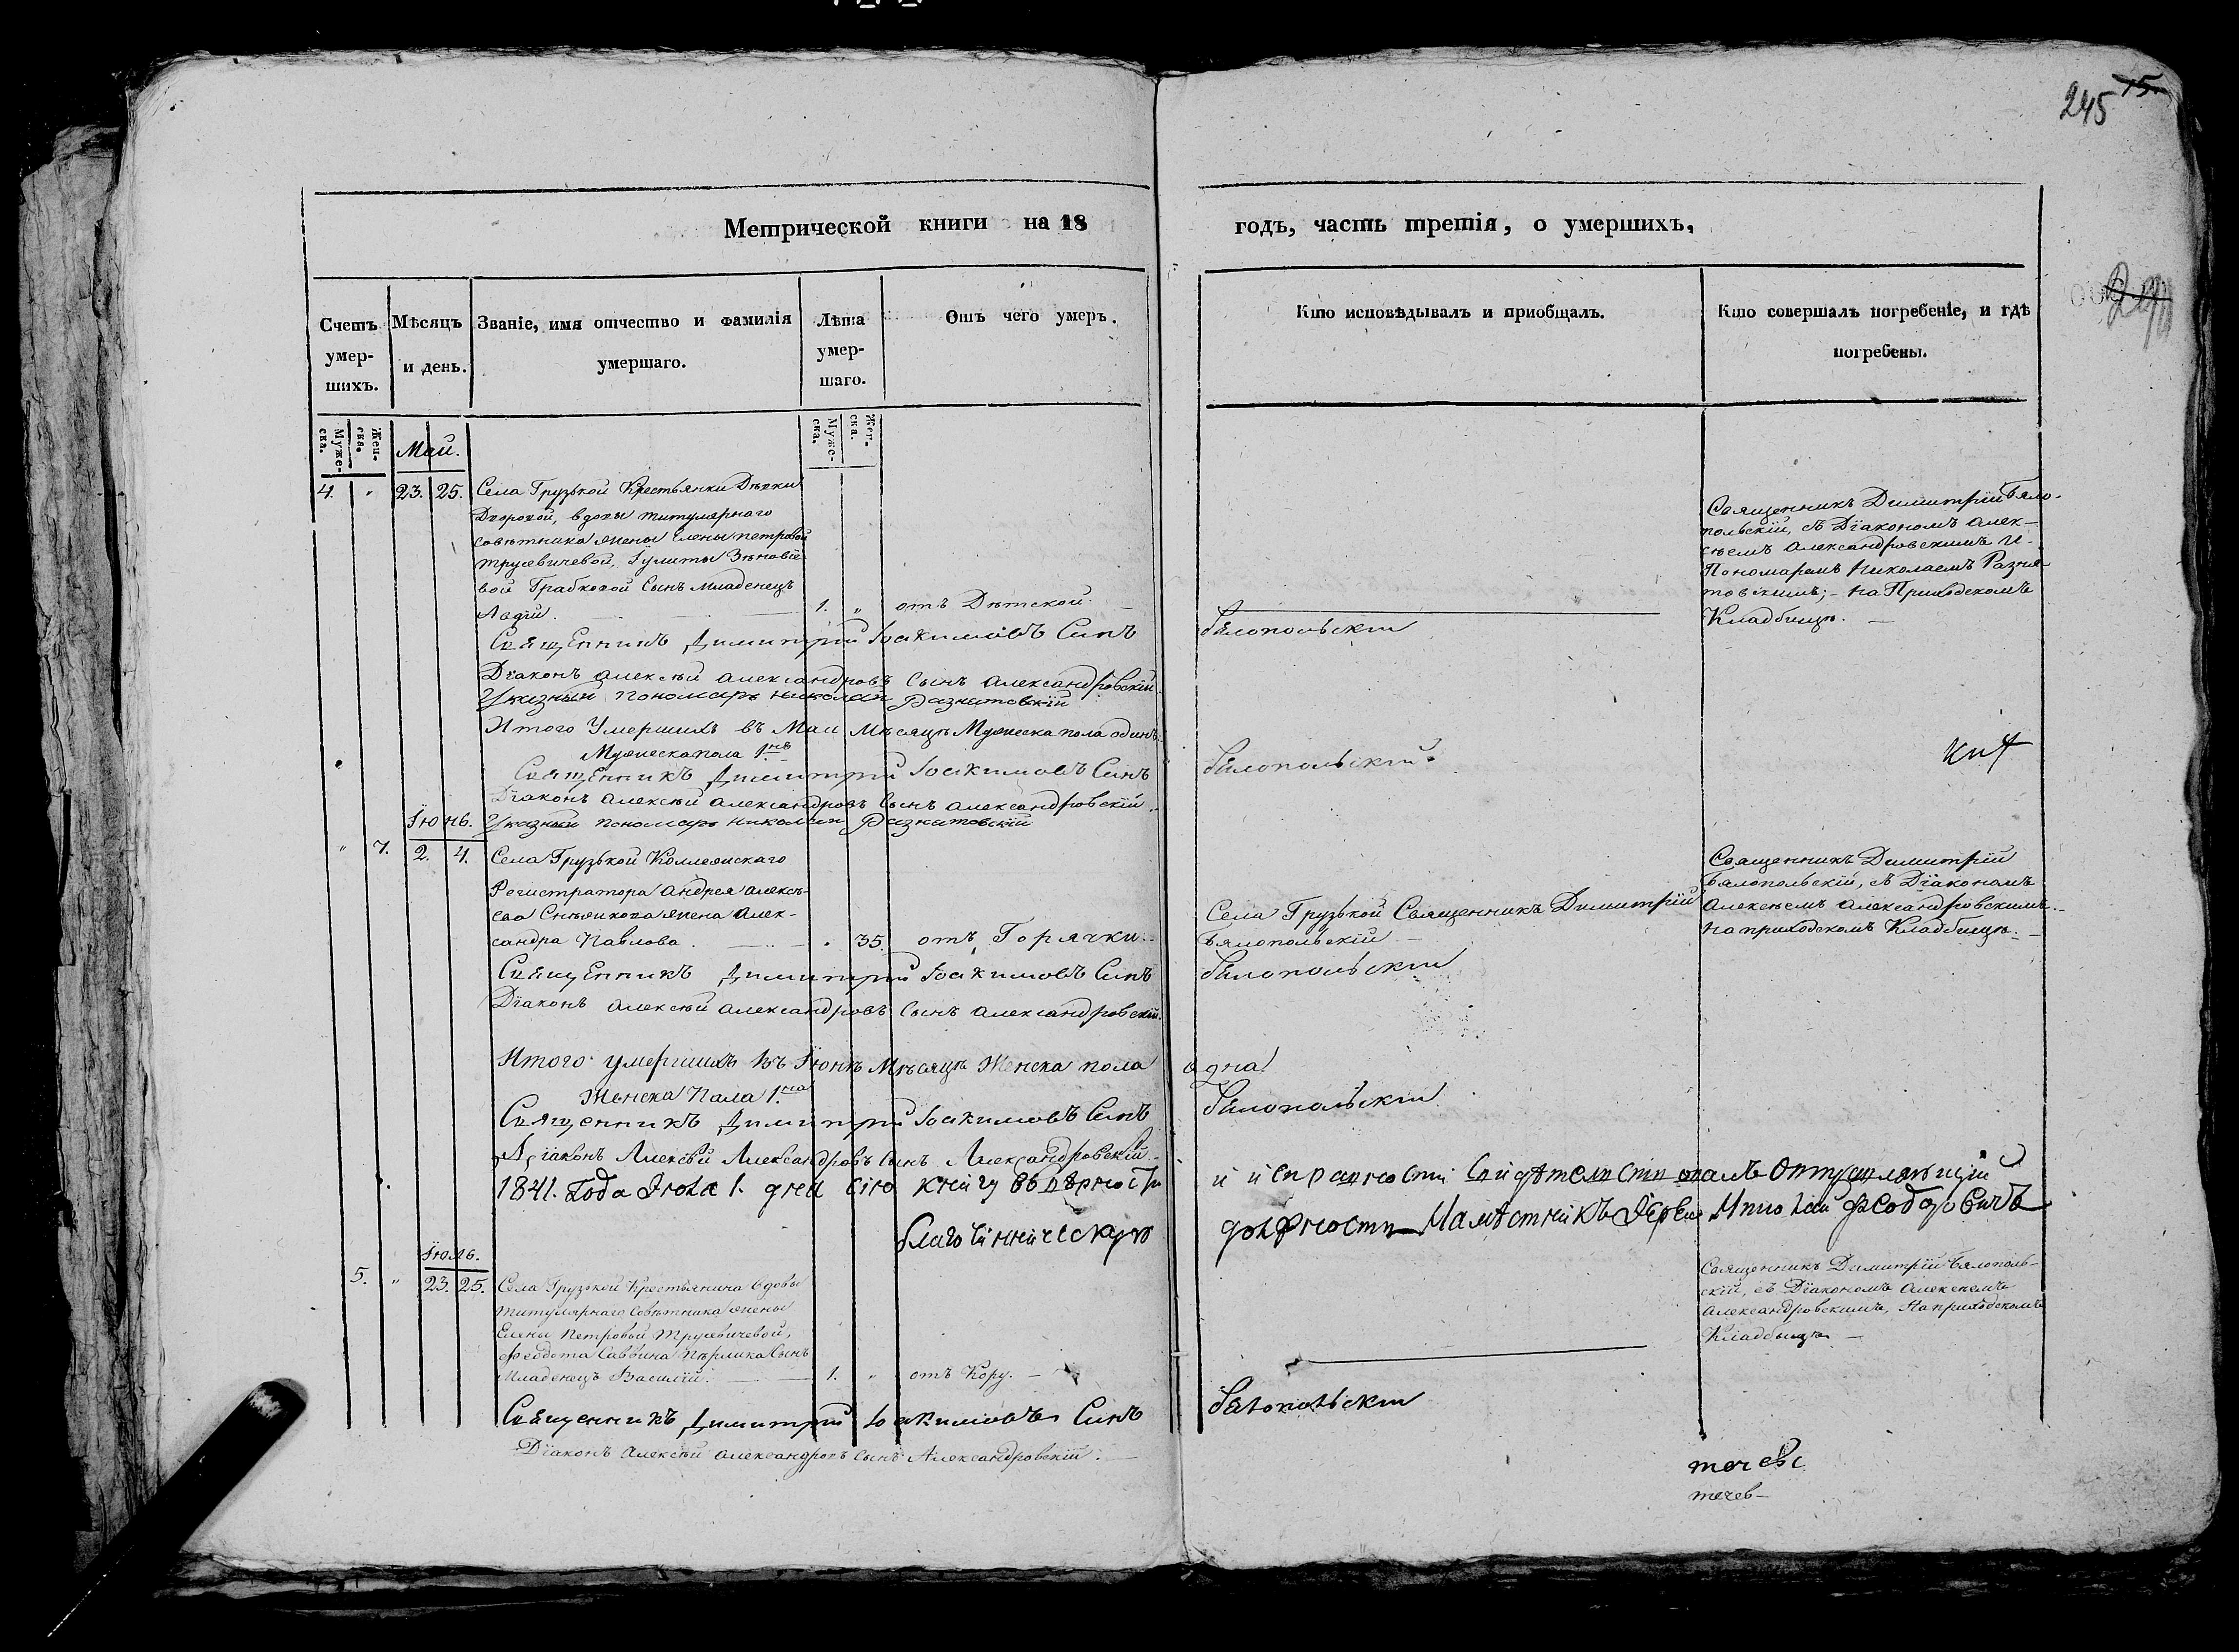 245 15.
Метрической книги на 18 годъ, часть третія, о умершихъ,
Счетъ умер-
шихъ.
Мѣсяцъ
и день.
Званіе, имя отчество и фамилія
умершаго.
Лѣта
умер-
шаго.
Отъ чего умеръ.
Кто исповѣдывалъ и приобщалъ.
Кто совершалъ погребеніе, и гдѣ
погребены.
Муже-
ска.
Жен-
ска.
Муже-
ска.
Жен-
ска.
Маій.
4. „ 23. 25. Села Грузькой Крестьянки Дѣвки
Дворовой, вдовы титулярнаго
совѣтника жены Елены петровой
трусевичевой, Іулиты Зѣновіе
вой Грабковой Сынъ младенецъ
1. „ отъ Дѣтской
Священникъ Димитрій Бяло-
польскій, съ Діакономъ алек-
сѣемъ александровскимъ и
Пономаремъ Николаемъ Разня-
товскимъ; на Приходскомъ
Кладбищѣ.
Священникъ Димитрій Іоакимовъ Синъ Бялопольскій
Діаконъ алексѣй александровъ Сынъ александровскій
Указный пономарь николай Разнатовскій
Итого Умершихъ въ Маи Мѣсяцѣ Мужеска пола одинъ.
Мужеска пола 1.нъ
Священникъ Димитрій Іоакимовъ Синъ Бялопольскій.
Діаконъ алексѣй александровъ Сынъ александровскій.
Указный пономарь николай Разнатовскій
Іюнь.
„ 7. 2. 4. Села Грузькой Коллежскаго
Регистратора андрея алексѣ-
ева Снѣжкова жена алек-
сандра Павлова. 35. отъ Горячки.
Села Грузькой Священникъ Димитрій
Бялопольскій
Священникъ Димитрій
Бялопольскій, съ Діакономъ
алексѣемъ александровскимъ.
на приходскомъ Кладбищѣ.
Священникъ Димитрій Іоакимовъ Синъ Бялопольскій
Діаконъ алексѣй александровъ Сынъ александровскій.
Итого умершихъ въ Іюнѣ Мѣсяцѣ Женска пола одна
Женска Пола 1.на
Священникъ Димитрій Іоакимовъ Синъ Бялопольскій
Діаконъ Алексѣй Александровъ Сынъ Александровскій.
1841. Года Июля 1. дня сію книгу въ вѣрности и исправности
благочинническую должность Намѣстникъ Іерей
Іюль.
5. „ 23. 25. Села Грузской Крестьянина вдовы
титулярнаго Совѣтника жены
Елены Петровой Трусевичевой,
Ѳеодота Саввина Сынъ
Младенецъ Василій. 1. „ отъ Кору.
Священникъ Димитрій Бялополь-
скій, съ Діакономъ алексѣемъ
александровскимъ, На приходскомъ
Кладбищѣ
Священникъ Димитрій Іоакимовъ Синъ Бялопольскій
Діаконъ алексѣй александровъ Сынъ Александровскій.